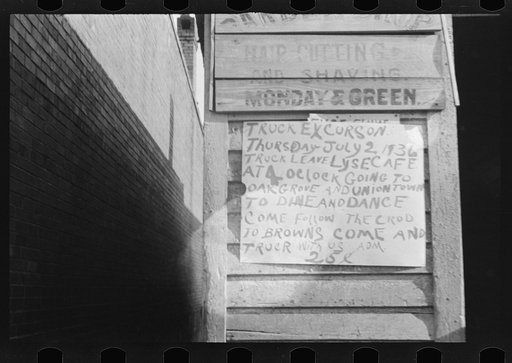 HAIR CUTTING &
AND SHAVING
MONDAY & GREEN
TRUCK EXCURSON
THURSDAY JULY 2, 1936
TRUCK LEAVE LYSE CAFE
AT 4 OCLOCK GOING TO
OAKGROVE AND UNIONTOWN
TO DINE AND DANCE
COME FOLLOW THE CROD
TO BROWNS COME AND
TRUCK WITH US ADM
25¢